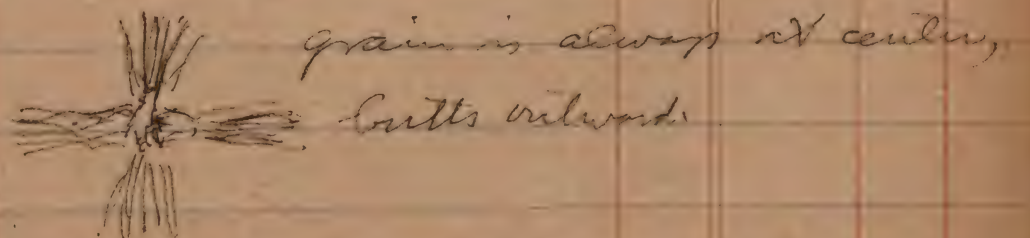 grain is always at center,
butts outward.